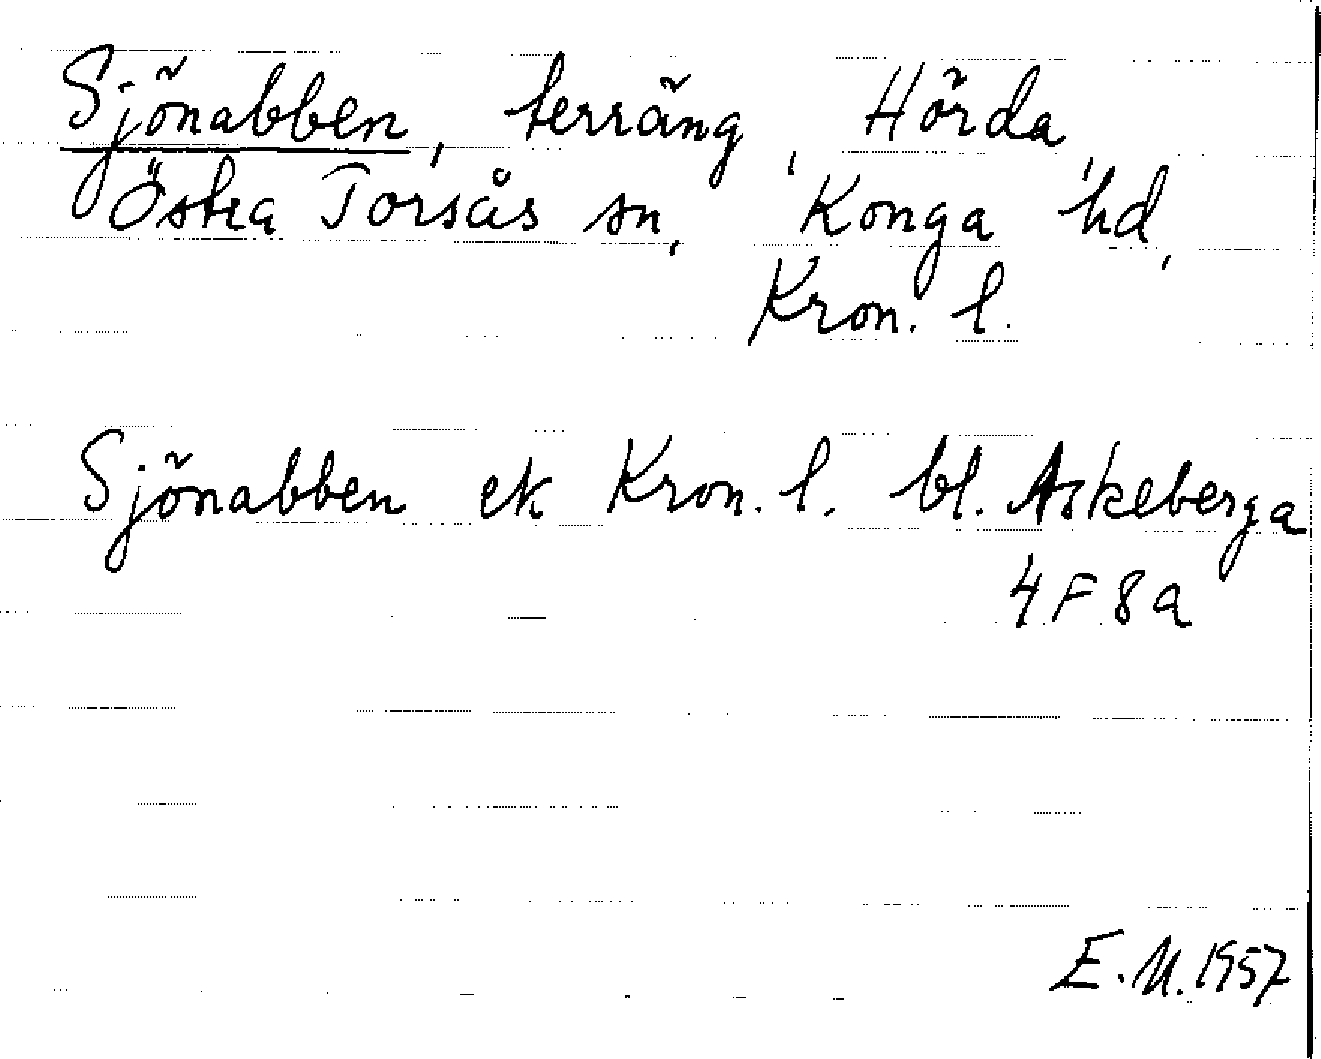 Sjönabben, terräng, Hörda,
Östra Torsås sn, Konga hd,
Kron. l.
Sjönabben ek Kron. l. bl. Askeberga
4 F 8 a
E. U. 1957